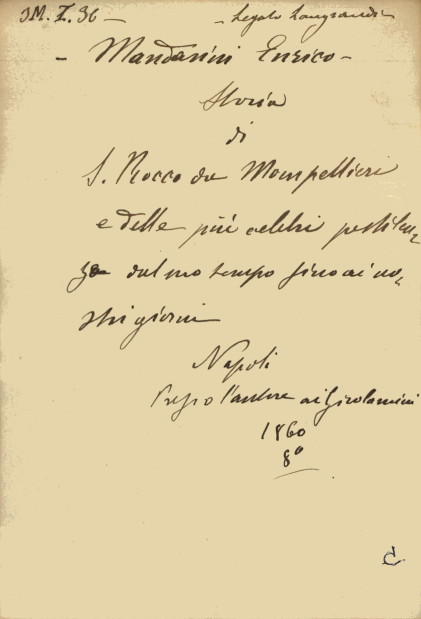 JM. I. 36 — Legato Langrandi
- Mandarini Enrico -
Storia
di
S. Rocco da Mompellieri
e delle più celebri pestilen,
ze dal suo tempo fino ai no,
stri giorni
Napoli
Presso l'autore ai Girolamini
1860
8°
C.